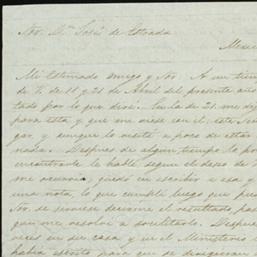 Sor. Dn. José de Estrada
Mexic
Mi Estimado amigo y Sor. A un tiem
de V. de 11 y 21 de Abril del presente año
tado por lo que dice. En la de 21. me di
para esta y que me viese con el, este Seño
gar, y aunque lo visité a poco de estar
nada. Despues de algun tiempo lo
encontrarle le hablé segun el deseo de
me ocurria, quedó en escribir a esa y
una nota, lo que cumplí luego que
Sor. se sirviese decirme el resultado
que me resolví a solicitarlo. Despue
veces en su casa y en el Ministerio
habia escrito para que se